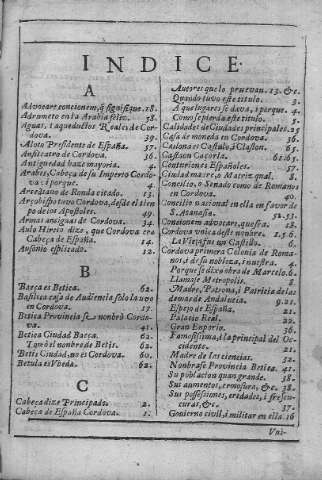 INDICE
A
Advocare concionem, q̃ significque. 18.
Adrumeto en la Arabia felex. 58.
Aguas, i aqueductos Reales de Cor-
dova. 39.
Aloto Presidente de España. 57.
Anfiteatro de Cordova. 36.
Antiguedad haze mayoria. 4.
Arabes, Cabeça de su Imperio Cordo-
va i porque. 4.
Arcediano de Ronda citado. 13.
Arçobispo tuvo Cordova, desde el tien
po de los Apostoles. 49.
Armas antiguas de Cordova. 34.
Aulo Hircio dize, que Cordova era
Cabeça de España. 14.
Ausonio esplicado. 12.
B
Barça es Betica. 62.
Basilica casa de Audiencia solo la uvo
en Cordova. 17.
Betica Provincia se nombrò Cordo-
va. 41.
Betica Ciudad Barça. 62.
Tanbeel nombre de Betis. 62.
Betis Ciudad, no es Cordova. 60.
Betula es Vbeda. 62.
C
Cabeça dize Principado. 2.
Cabeça de España Cordova. 1.
Autores que lo pruevan. 13. &c.
Quando tuvo este titulo. 3.
A que lugares se dava, i porque. 4.
Como se pierda este titulo. 5.
Calidades de Ciudades principales. 25
Casa de moneda en Cordova. 36.
Castona es Castulo, i Claston. 65.
Castaon Caçorla. 62. 65.
Centuriones Españoles. 57.
Ciudad madre, o Matriz qual. 8.
Concilio, o Senado como de Romanos
en Cordova. 40.
Concilio nacional en ella en favor de
S. Atanasio. 52. 53.
Concionem advocare, que sea. 18.
Cordova voz i deste nonbre. 1. 5. 6.
La Vieja fue un Castillo. 6.
Cordova primera Colonia de Roma-
nos, i de su nobleza, i nuestra. 4.
Porque se dixo obra de Marcelo. 6.
Llamase Metropolis. 8.
Madre, Patrona, i Patricia de las
demas de Andaluzia. 9. 21.
Espejo de España. 21.
Palacio Real. 22.
Gran Enporio. 36.
Famosissima, i la principal del Oc-
cidente. 21.
Madre de las ciencias. 32.
Nonbrase Provincia Betica. 41.
Su poblacion quan grande. 38.
Sus aumentos, ermosura, &c. 38.
Sus possessiones, eredades, i fres-
curas, &c. 37.
Govierno civil, i militar en ella. 16
Vni-